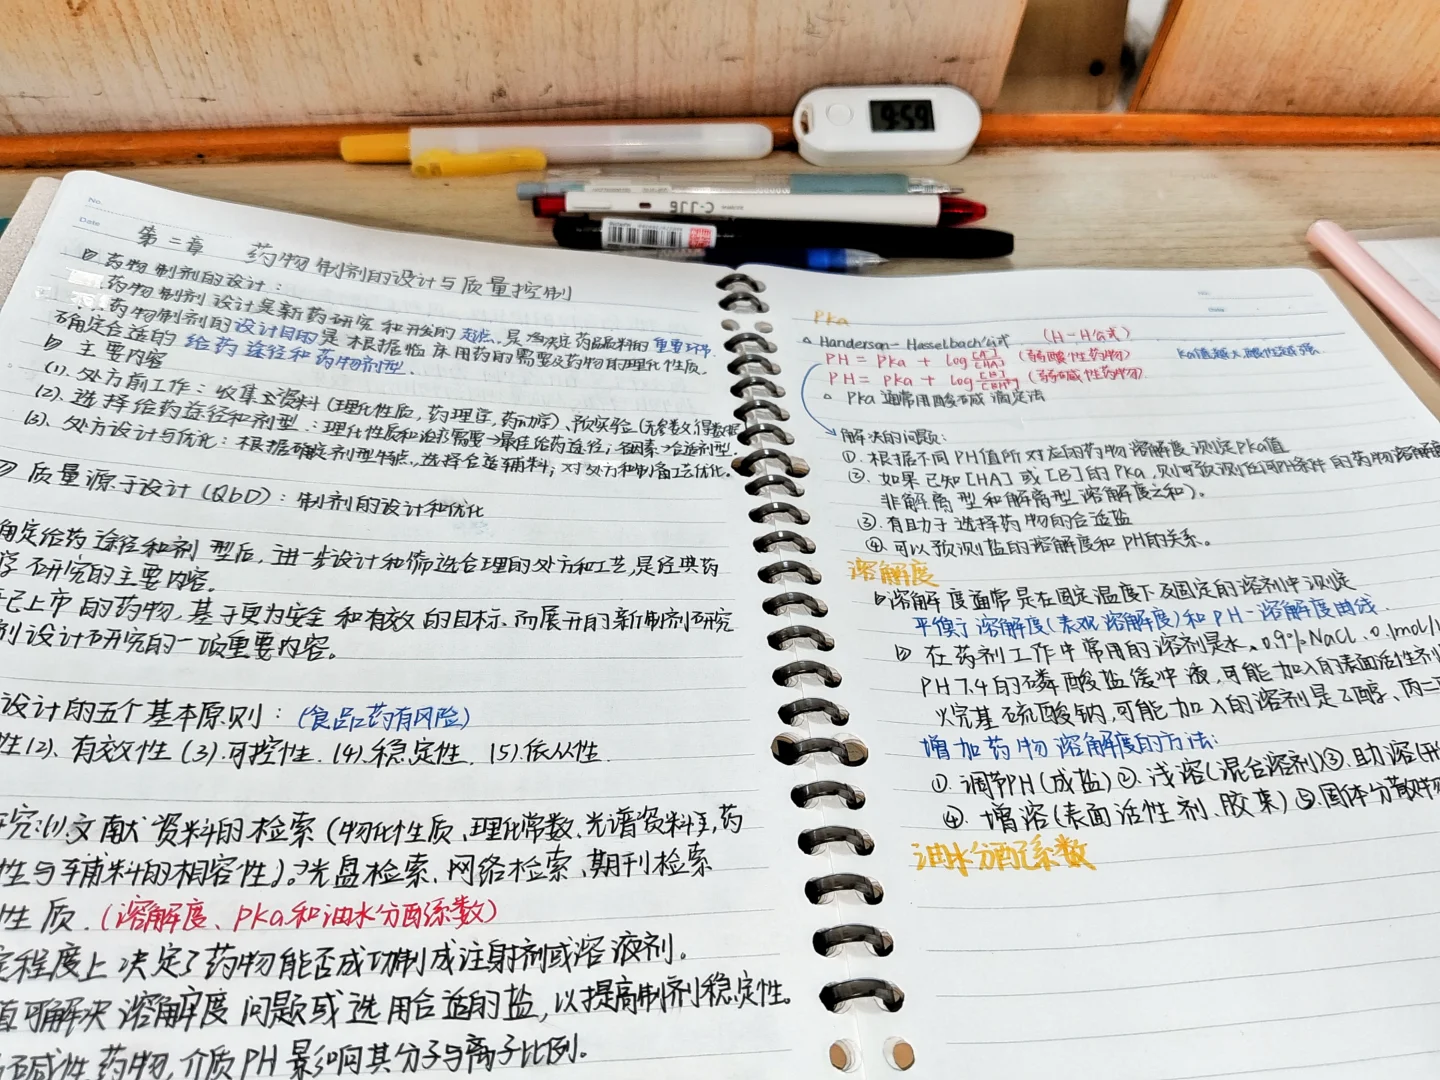 9:59
No.
Date
第二章 药物制剂的设计与质量控制
药物制剂的设计:
药物制剂设计是新药研究和开发的起点,是决定药品质量的重要环节.
药物制剂的设计目的是根据临床用药的需要及药物的理化性质,
确定合适的给药途径和药物剂型.
主要内容
(1).处方前工作:收集资料(理化性质,药理学,药动学)、预实验(
(2).选择给药途径和剂型:理化性质和治疗需要→最佳给药途径;各因素→合适剂型.
(3).处方设计与优化:根据确定剂型特点,选择合适辅料;对处方和制备工艺优化.
质量源于设计(QbD):制剂的设计和优化
确定给药途径和剂型后,进一步设计和筛选合理的处方和工艺,是经典药
学研究的主要内容。
已上市的药物,基于更为安全和有效的目标.而展开的新制剂研究
剂设计研究的一项重要内容。
设计的五个基本原则:(食品药有风险)
性(2).有效性(3).可控性.(4).稳定性.(5).依从性.
究:(1).文献资料的检索(物化性质、理化常数、光谱资料,药
性与辅料的相容性)。光盘检索、网络检索、期刊检索
性质.(溶解度、pKa和油水分配系数)
定程度上决定了药物能否成功制成注射剂或溶液剂。
值可解决溶解度问题或选用合适的盐,以提高制剂稳定性。
碱性药物,介质PH影响其分子与离子比例.
No:
Date
PKa
Handerson-Hasselbach公式 (H-H公式)
PH = PKa + log[A⁻]/[HA] (弱酸性药物) Ka值越大,酸性越强.
PH = PKa + log[B]/[BH⁺] (弱碱性药物)
PKa 通常用酸碱滴定法
解决的问题:
①.根据不同PH值所对应的药物溶解度测定PKa值
②.如果已知[HA]或[B]的PKa,则可预测任何PH条件的药物溶解度
非解离型和解离型溶解度之和)。
③.有助于选择药物的合适盐
④.可以预测盐的溶解度和PH的关系。
溶解度
溶解度通常是在固定温度下及固定的溶剂中测定
平衡溶解度(表观溶解度)和PH-溶解度曲线.
在药剂工作中常用的溶剂是水、0.9%NaCl、0.1mol/L
PH7.4的磷酸盐缓冲液,可能加入的表面活性剂
烷基硫酸钠,可能加入的溶剂是乙醇、丙二
增加药物溶解度的方法:
①.调节PH(成盐)②.潜溶(混合溶剂)③.助溶(
④.增溶(表面活性剂、胶束)⑤.固体分散
油水分配系数